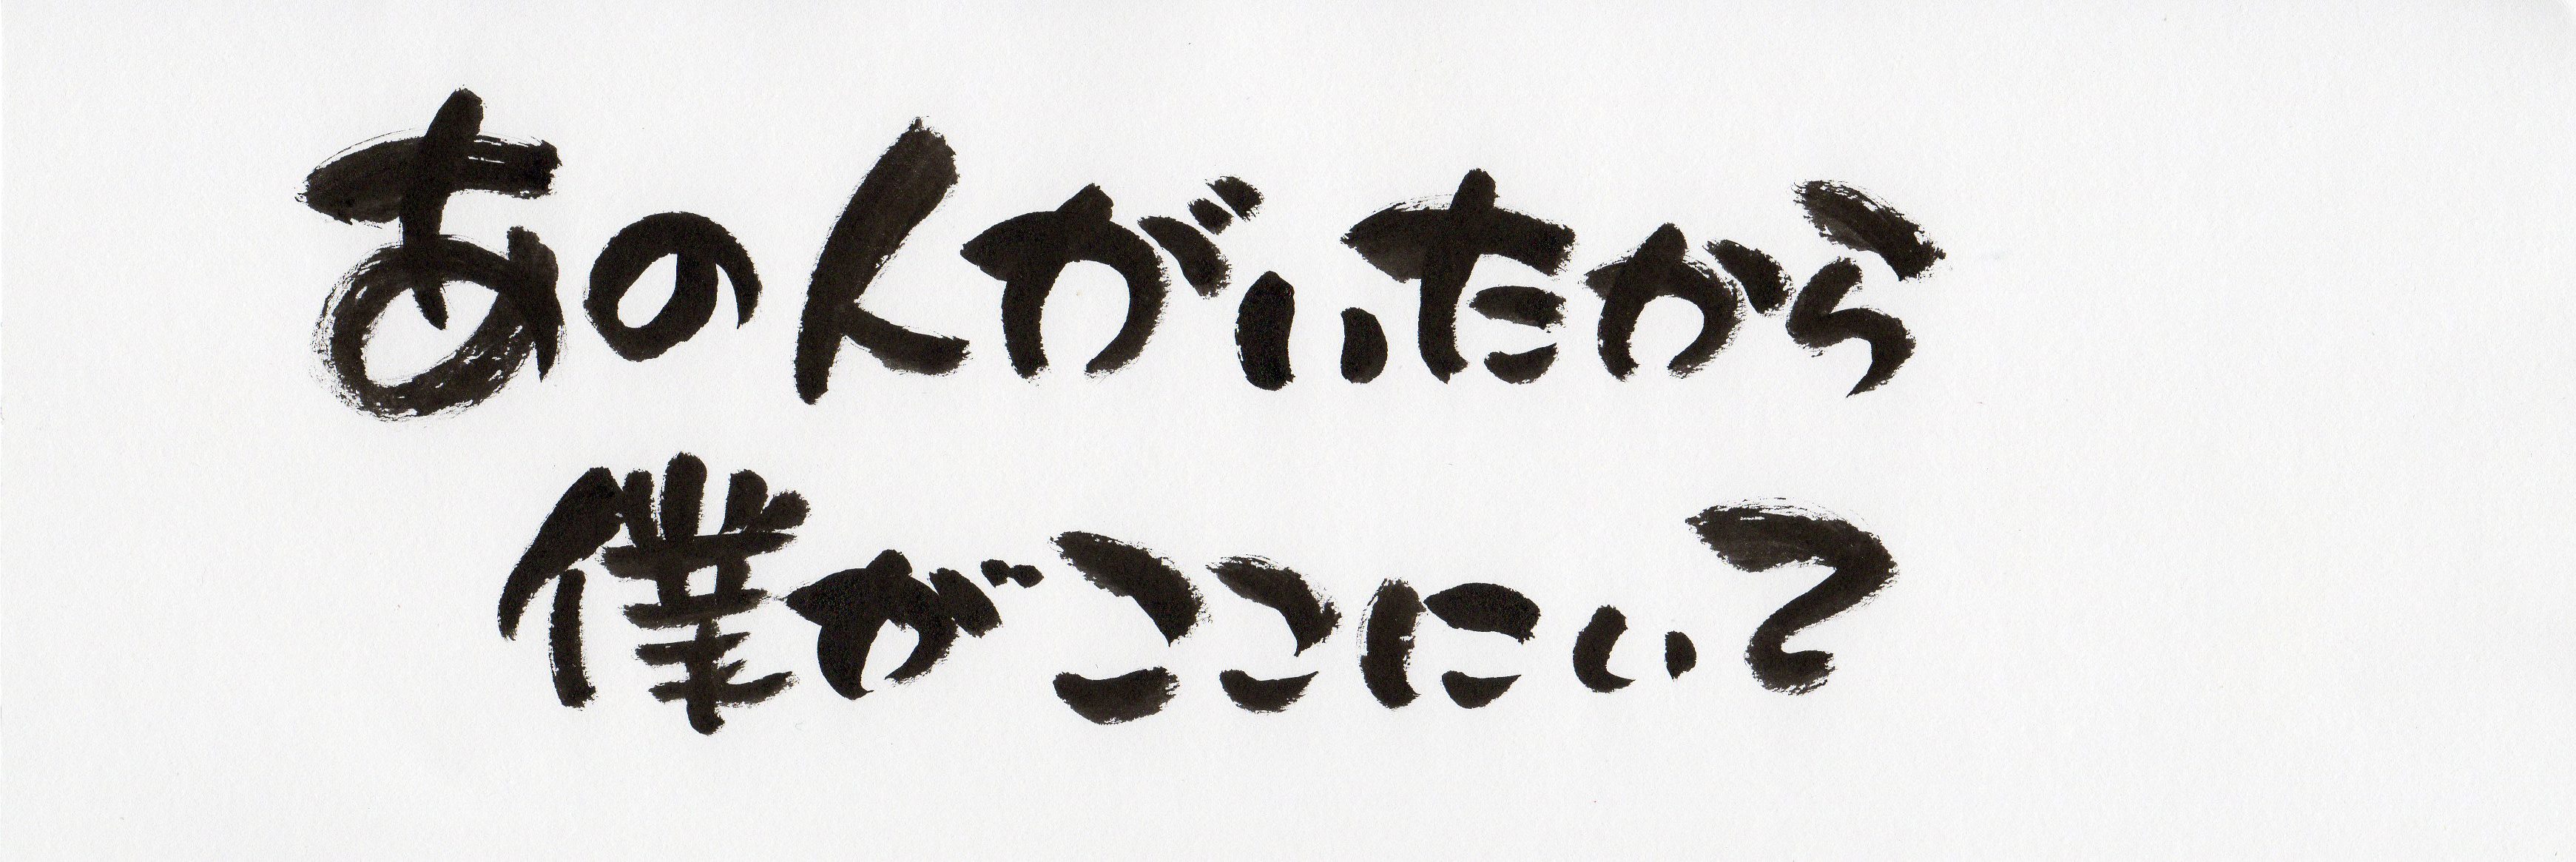 あの人がいたから
僕がここにいて